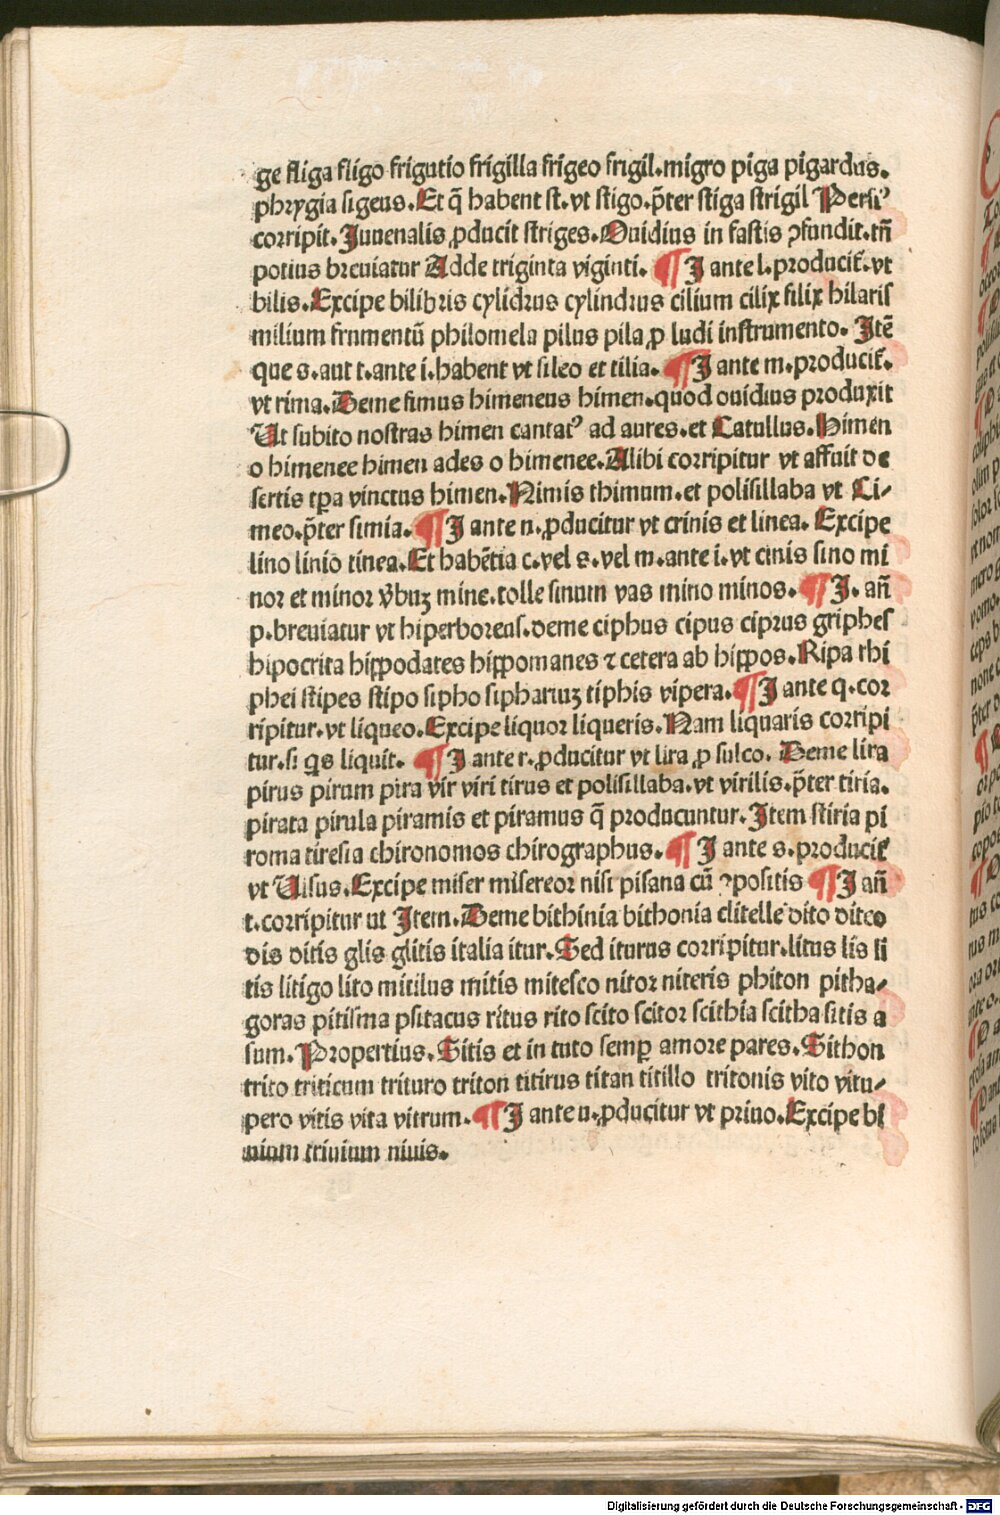 ge fliga fligo frigutio frigilla frigeo frigil.migro piga pigardus.
phrygia sigeus.Et q̄ habent st.vt stigo.p̄ter stiga strigil Persiꝰ
corripit.Juuenalis ꝓducit striges.Ouidius in fastis ꝯfundit.tñ
potius breuiatur Adde triginta viginti. ¶ J ante l.producit᷑.vt
bilis.Excipe bilibris cylidrus cylindrus cilium cilix filix hilaris
milium frumentū philomela pilus pila ꝓ ludi instrumento. Jtē
que s.aut t.ante i.habent vt sileo et tilia. ¶ J ante m.producit᷑.
vt rima.Deme fimus himeneus himen.quod ouidius produxit
Ut subito nostras himen cantatꝰ ad aures.et Catullus.Himen
o himenee himen ades o himenee.Alibi corripitur vt affuit de
sertis tꝑa vinctus himen.Nimis thimum.et polisillaba vt Ci⸗
meo.p̄ter simia. ¶ J ante n.ꝓducitur vt crinis et linea. Excipe
lino linio tinea.Et habētia c.vel s.vel m.ante i.vt cinis sino mi
nor et minor v̄buꝫ mine.tolle sinum vas mino minos. ¶ J. añ
p.breuiatur vt hiperboreus.deme ciphus cipus ciprus griphes
hipocrita hiꝓpodates hiꝓpomanes ⁊ cetera ab hiꝓpos.Ripa rhi
phei stipes stipo sipho siphariuꝫ tiphis vipera. ¶ J ante q.cor
ripitur.vt liqueo.Excipe liquor liqueris.Nam liquaris corripi
tur.si qͥs liquit. ¶ J ante r.ꝓducitur vt lira ꝓ sulco. Deme lira
pirus pirum pira vir viri tirus et polisillaba.vt virilis.p̄ter tiria.
pirata pirula piramis et piramus q̄ producuntur.Jtem stiria pi
roma tiresia chironomos chirographus. ¶ J ante s.producit᷑
vt Uisus.Excipe miser misereor nisi pisana cū ꝯpositis ¶ J añ
t.corripitur ut Jtem.Deme bithinia bithonia clitelle dito diteo
dis ditis glis glitis italia itur.Sed iturus corripitur.litus lis li
tis litigo lito mitilus mitis mitesco nitor niteris phiton pitha⸗
goras pitisma psitacus ritus rito scito scitor scithia scitha sitis a
sum.Propertius.Sitis et in tuto semꝑ amore pares.Sithon
trito triticum trituro triton titirus titan titillo tritonis vito vitu⸗
pero vitis vita vitrum. ¶ J ante u.ꝓducitur vt priuo.Excipe bi
uium triuium niuis.
Digitalisierung gefördert durch die Deutsche Forschungsgemeinschaft - DFG